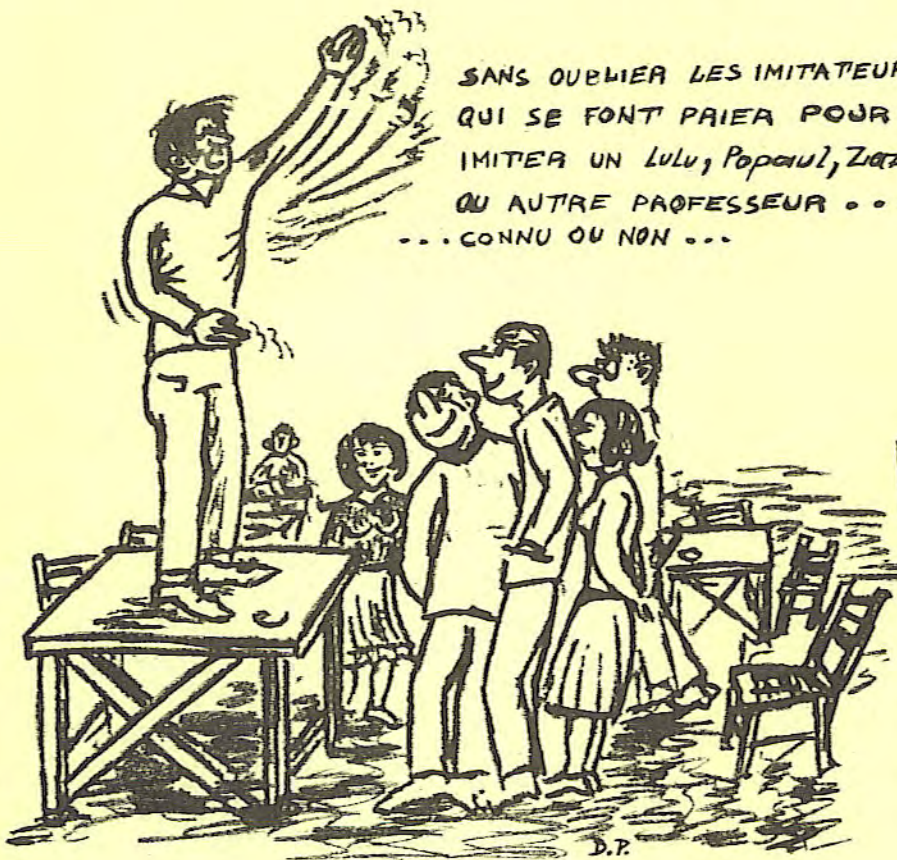 SANS OUBLIER LES IMITATEUR
QUI SE FONT PRIER POUR
IMITER UN LULU, Popaul,
OU AUTRE PROFESSEUR ..
... CONNU OU NON ...
D.P.